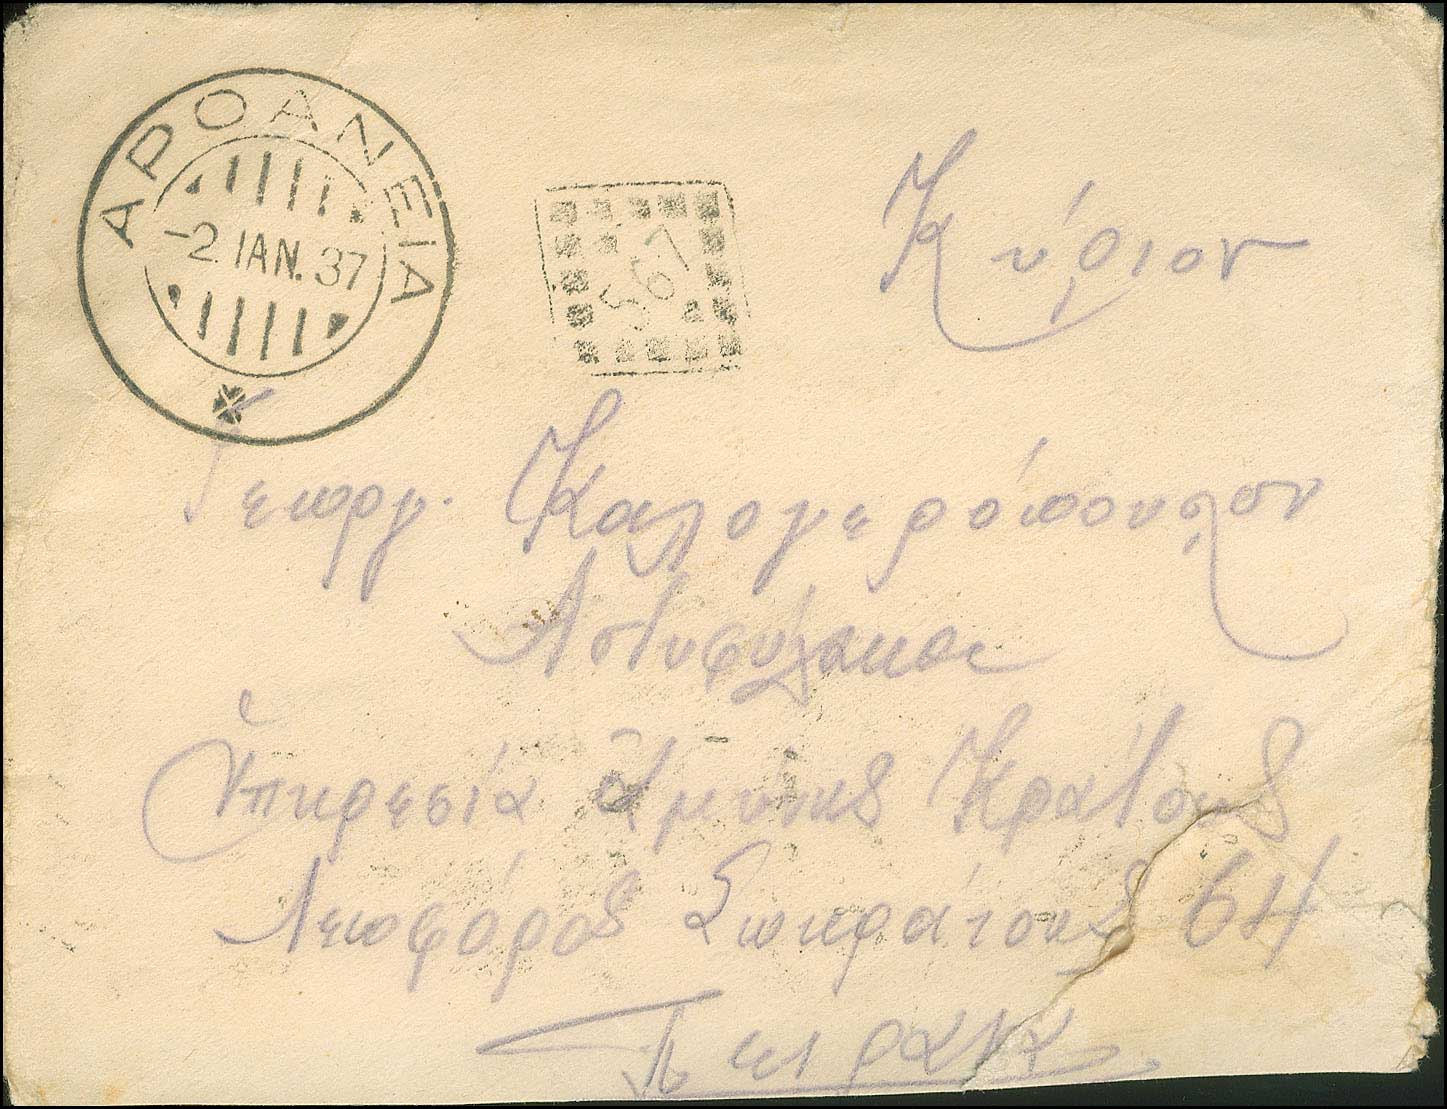 ΑΡΟΑΝΕΙΑ
-2 ΙΑΝ. 37
567
Κύριον
Γεωργ. Καλογερόπουλον
Αστυφύλακα
Ὑπηρεσία Αμύνης Κράτους
Λεωφόρος Σωκράτους 64
Πειραια